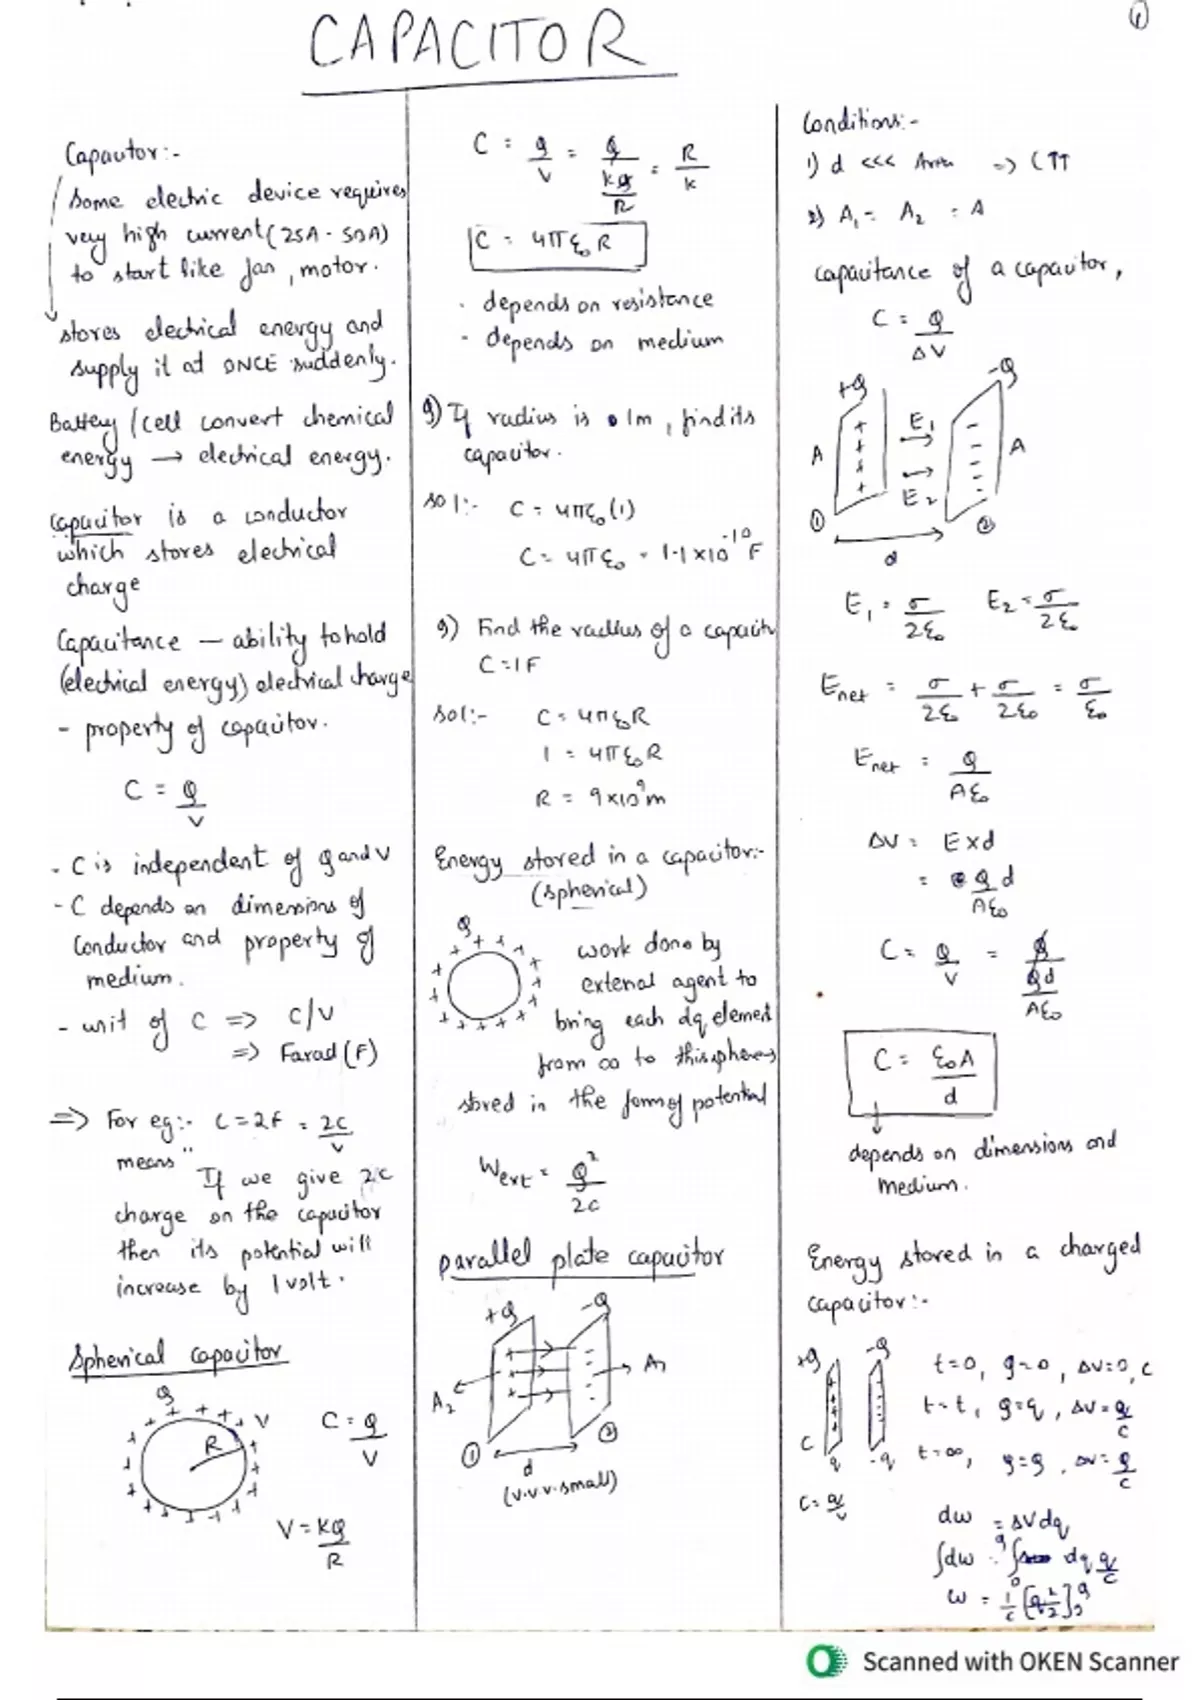 CAPACITOR
1
Capacitor:-
Some electric device requires
very high current (25A - 50A)
to start like fan, motor.
stores electrical energy and
supply it at ONCE suddenly.
Battery / cell convert chemical
energy → electrical energy.
Capacitor is a conductor
which stores electrical
charge
Capacitance — ability to hold
(electrical energy) electrical charge
- property of capacitor.
C = Q/V
- C is independent of Q and V
- C depends on dimensions of
Conductor and property of
medium.
- unit of C => C/V
=> Farad (F)
=> For eg:- C = 2F = 2C/V
means "
If we give 2C
charge on the capacitor
then its potential will
increase by 1 volt.
Spherical capacitor
Q
+ + + + V
R
C = Q/V
V = KQ/R
C = Q/V = Q/(KQ/R) = R/K
C = 4πε₀R
. depends on resistance
- depends on medium
Q) If radius is 1m, find its
capacitor.
sol:- C = 4πε₀(1)
C = 4πε₀ = 1.1×10⁻¹⁰ F
Q) Find the radius of a capacitor
C = 1F
Sol:- C = 4πε₀R
1 = 4πε₀R
R = 9×10⁹m
Energy stored in a capacitor:-
(spherical)
Q
work done by
external agent to
bring each dq element
from ∞ to this sphere
stored in the form of potential
Wext = Q²/2C
parallel plate capacitor
+Q -Q
A₂ A₁
① ②
d
(v.v.v.small)
Conditions:-
1) d <<< Area => C↑↑
2) A₁ = A₂ = A
capacitance of a capacitor,
C = Q/ΔV
+Q -Q
A E₁ A
E₂
① ②
d
E₁ = σ/2ε₀ E₂ = σ/2ε₀
Enet = σ/2ε₀ + σ/2ε₀ = σ/ε₀
Enet = Q/Aε₀
ΔV = E×d
= Qd/Aε₀
C = Q/V = Q/(Qd/Aε₀)
C = ε₀A/d
depends on dimensions and
medium.
Energy stored in a charged
capacitor:-
+Q -Q
t=0, q=0, ΔV=0, C
t=t, q=q, ΔV=q/C
t=∞, q=Q, ΔV=Q/C
C
q -q
C = q/V
dw = ΔVdq
∫dw = ∫ dq q/C
w = 1/C [q²/2]
Scanned with OKEN Scanner